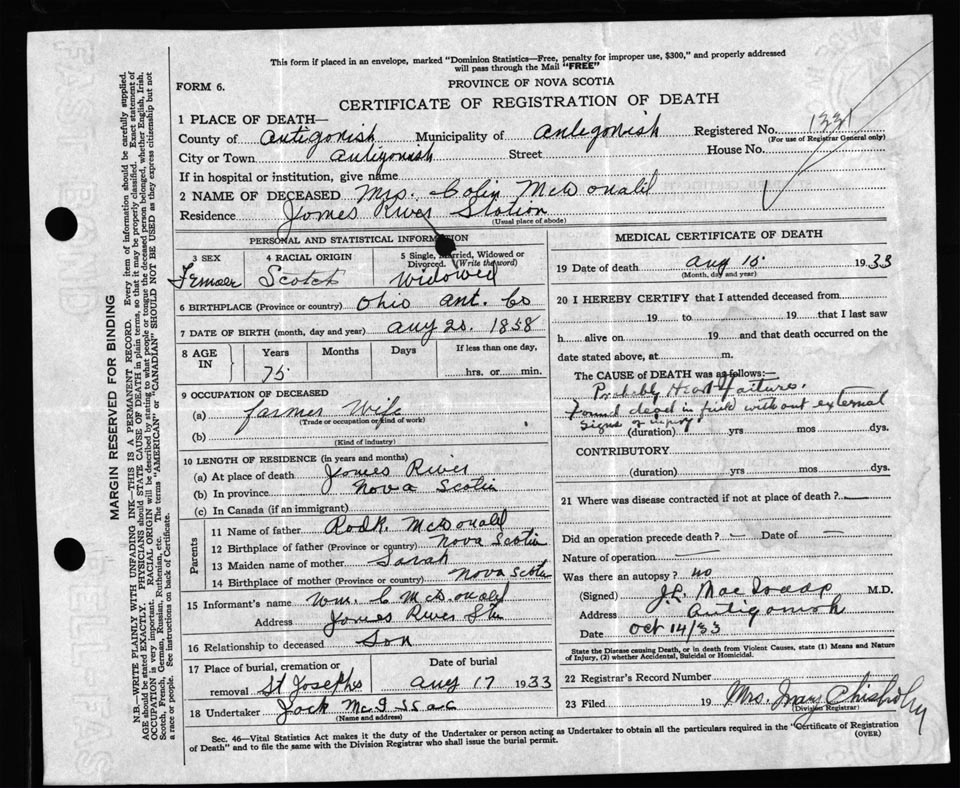 This form if placed in an envelope, marked "Dominion Statistics—Free, penalty for improper use, $300," and properly addressed
will pass through the Mail "FREE"
FORM 6.
PROVINCE OF NOVA SCOTIA
CERTIFICATE OF REGISTRATION OF DEATH
1 PLACE OF DEATH—
County of Antigonish Municipality of Antigonish Registered No. 1331
(For use of Registrar General only)
City or Town Antigonish Street House No.
If in hospital or institution, give name
2 NAME OF DECEASED Mrs. Colin McDonald
Residence Jomes River Station
(Usual place of abode)
PERSONAL AND STATISTICAL INFORMATION
3 SEX 4 RACIAL ORIGIN 5 Single, Married, Widowed or
Divorced. (Write the word)
Scotch Widowed
6 BIRTHPLACE (Province or country) Ohio Ant. Co
7 DATE OF BIRTH (month, day and year) Aug 20. 1858
8 AGE IN Years Months Days If less than one day,
75 hrs. or min.
9 OCCUPATION OF DECEASED
(a) farmer Wife
(Trade or occupation or kind of work)
(b)
(Kind of industry)
10 LENGTH OF RESIDENCE (in years and months)
(a) At place of death Jomes River
(b) In province Nova Scotia
(c) In Canada (if an immigrant)
Parents
11 Name of father Rodk. McDonald
12 Birthplace of father (Province or country) Nova Scotia
13 Maiden name of mother Sarah
14 Birthplace of mother (Province or country) Nova Scotia
15 Informant's name Wm. C McDonald
Address Jomes River Stn
16 Relationship to deceased Son
17 Place of burial, cremation or Date of burial
removal St Josephs Aug 17 1933
18 Undertaker Jack McIsaac
(Name and address)
MEDICAL CERTIFICATE OF DEATH
19 Date of death Aug 15. 1933
(Month, day and year)
20 I HEREBY CERTIFY that I attended deceased from
19 to 19 that I last saw
h alive on 19 and that death occurred on the
date stated above, at m.
The CAUSE of DEATH was as follows:—
Probably Heart failure.
Found dead in field without external
signs of injury.
(duration) yrs mos dys.
CONTRIBUTORY
(duration) yrs mos dys.
21 Where was disease contracted if not at place of death? —
Did an operation precede death? — Date of —
Nature of operation —
Was there an autopsy? no
(Signed) M.D.
Address Antigonish
Date Oct 14/33
State the Disease causing Death, or in death from Violent Causes, state (1) Means and Nature
of Injury, (2) whether Accidental, Suicidal or Homicidal.
22 Registrar's Record Number
23 Filed 19 Mrs. Mary Chisholm
(Division Registrar)
Sec. 46—Vital Statistics Act makes it the duty of the Undertaker or person acting as Undertaker to obtain all the particulars required in the "Certificate of Registration
of Death" and to file the same with the Division Registrar who shall issue the burial permit.
(OVER)
MARGIN RESERVED FOR BINDING
N.B.—WRITE PLAINLY WITH UNFADING INK—THIS IS A PERMANENT RECORD. Every item of information should be carefully supplied.
AGE should be stated EXACTLY. PHYSICIANS should STATE CAUSE OF DEATH in plain terms, so that it may be properly classified. Exact statement of
OCCUPATION is very important. RACIAL ORIGIN will be described by stating to what people or tongue the deceased person belonged, whether English, Irish,
Scotch, French, German, Russian, Ruthenian, etc. The terms "AMERICAN" or "CANADIAN" SHOULD NOT BE USED as they express citizenship but not
a race or people. See instructions on back of Certificate.